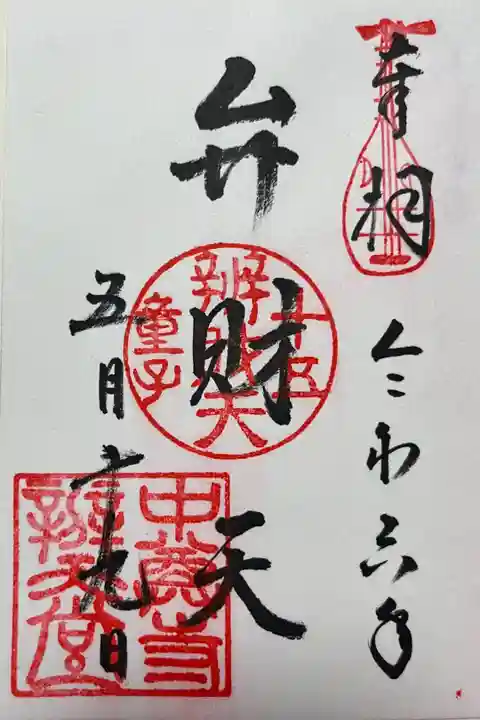 奉拝
令和六年
弁財天
五月十九日
十五
辨財天
童子
中尊寺
辨才堂